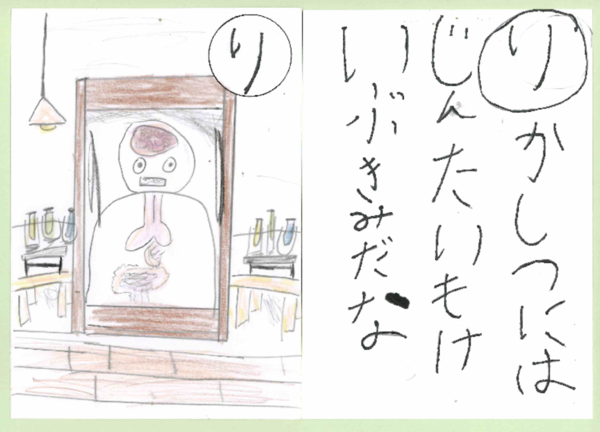 りかしつには
じんたいもけ
いぶきみだな
り